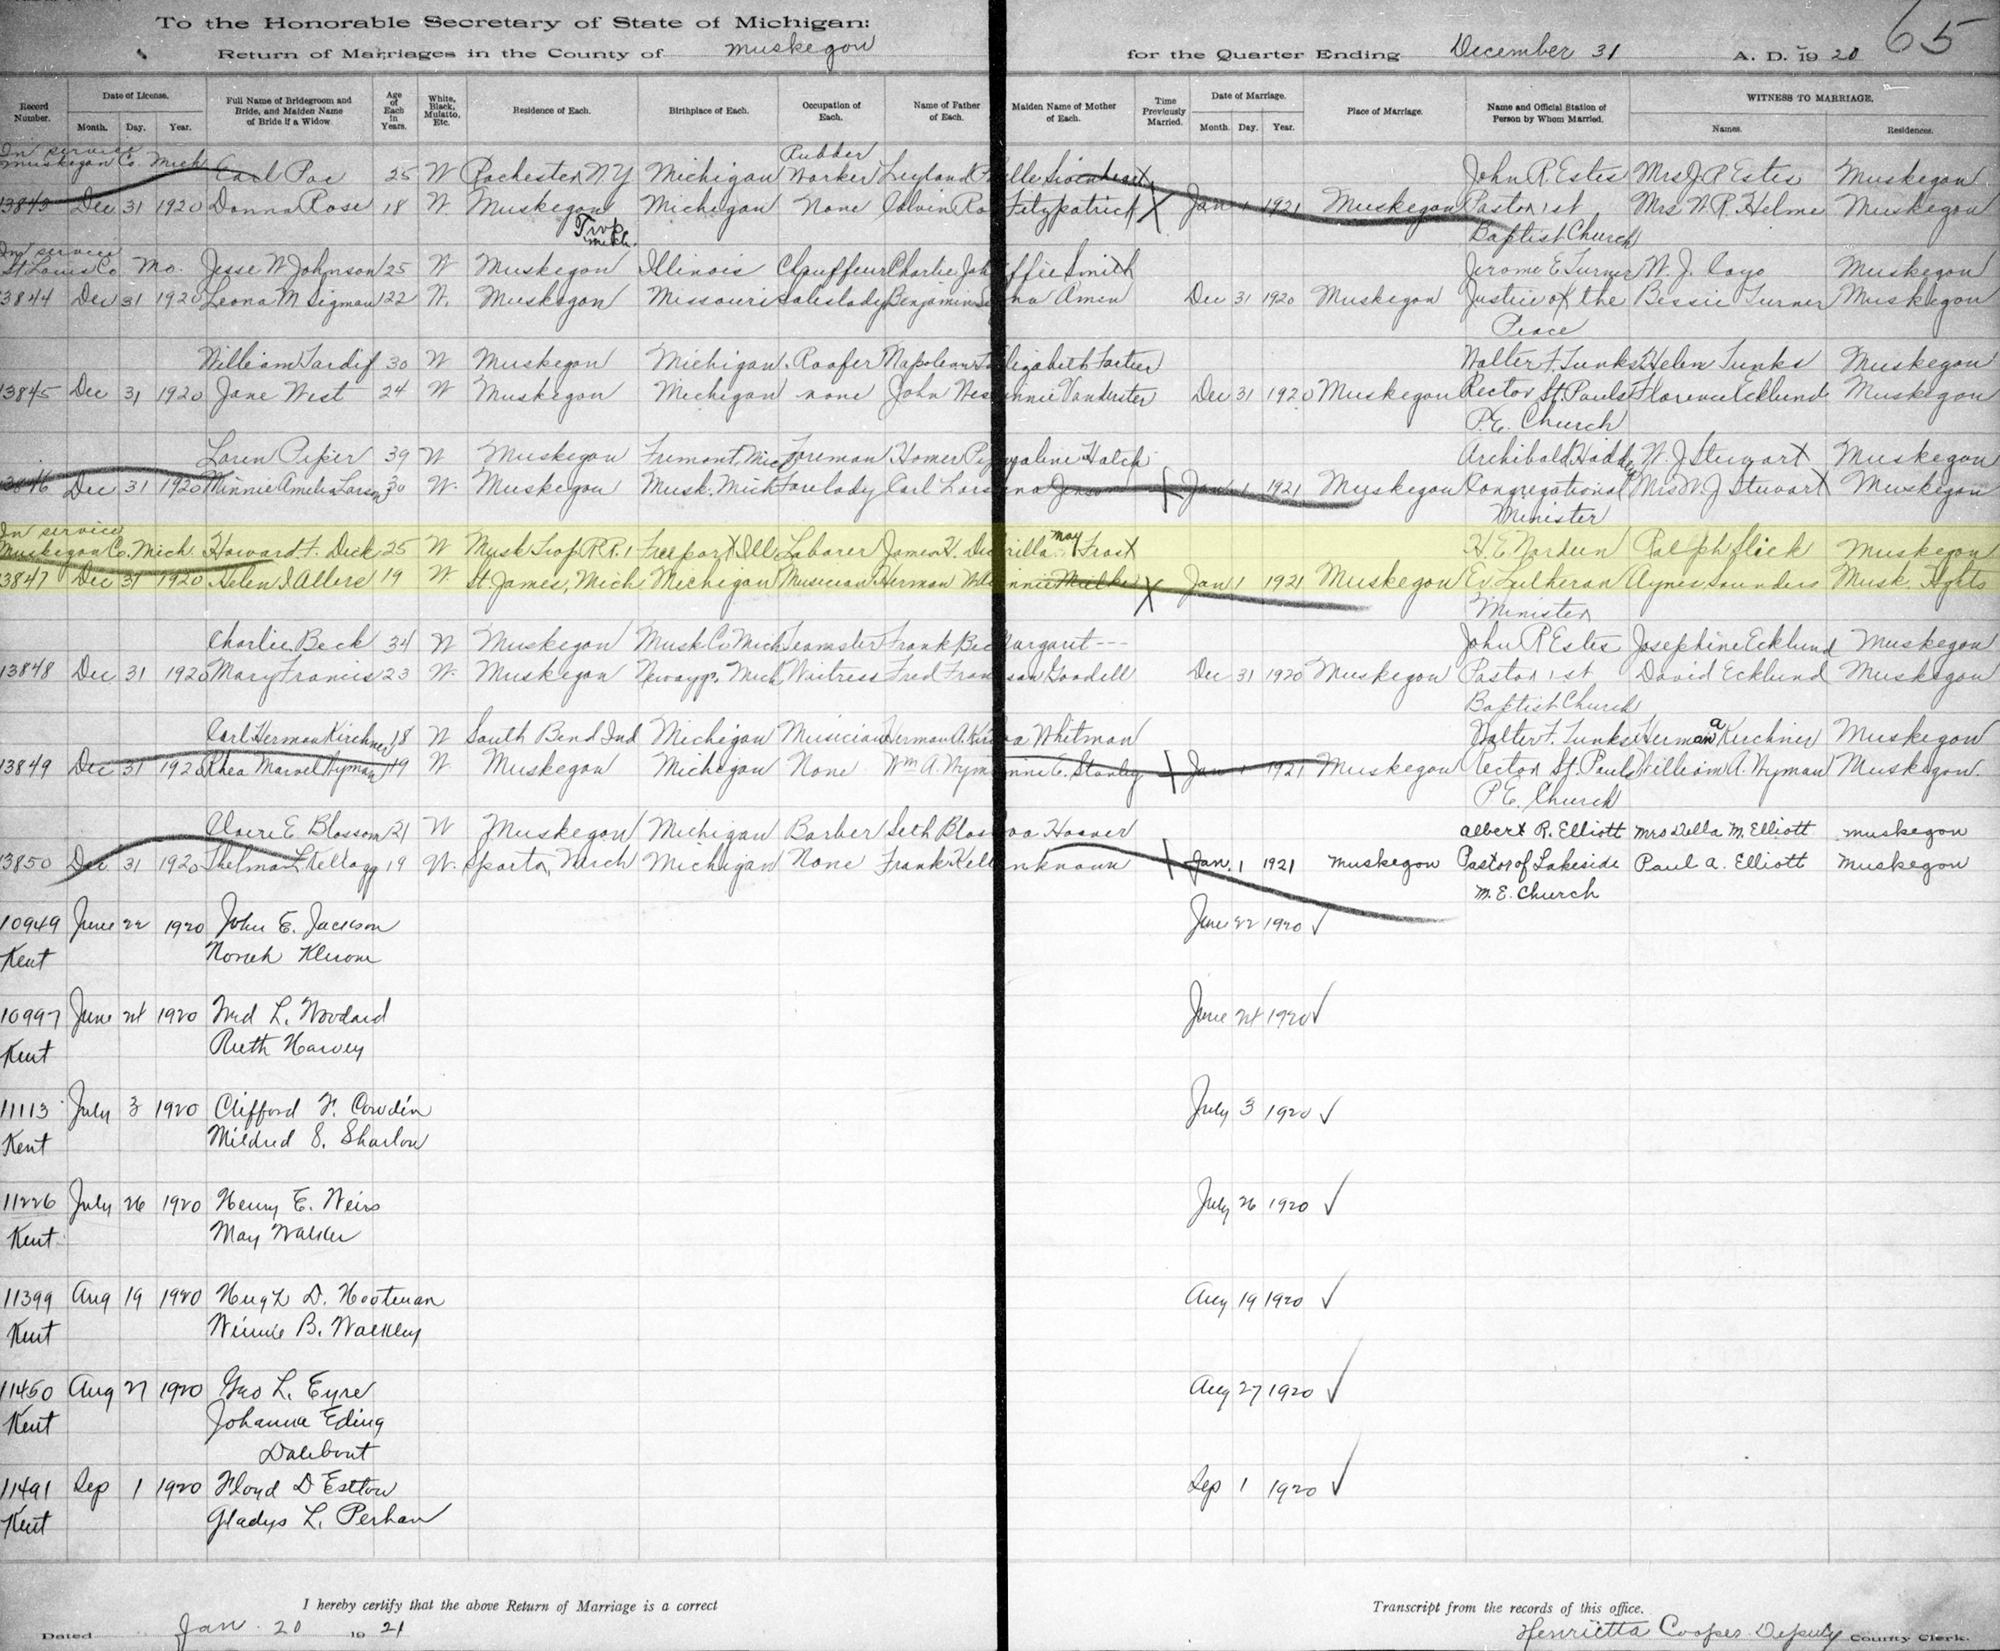 To the Honorable Secretary of State of Michigan:
65
Return of Marriages in the County of Muskegon for the Quarter Ending December 31 A. D. 1920
Record Number. Date of License. Month. Day. Year. Full Name of Bridegroom and Bride, and Maiden Name of Bride if a Widow. Age of Each in Years. White, Black, Mulatto, Etc. Residence of Each. Birthplace of Each. Occupation of Each. Name of Father of Each. Maiden Name of Mother of Each. Time Previously Married. Date of Marriage. Month. Day. Year. Place of Marriage. Name and Official Station of Person by Whom Married. WITNESS TO MARRIAGE. Names. Residences.
In service
Muskegon Co. Mich Carl 25 W Rochester N.Y Michigan Rubber Worker Leyland John R. Estes Mrs J R Estes Muskegon
13843 Dec 31 1920 Donna Rose 18 W Muskegon Twp. Mich. Michigan None Calvin Ro Fitzpatrick X Jan 1 1921 Muskegon Pastor 1st Mrs W. R. Helme Muskegon
Baptist Church
In service
St Louis Co Mo. Jesse W Johnson 25 W Muskegon Illinois Chauffeur Charlie Joh ffie Smith Jerome E. Turner W. J. Cayo Muskegon
13844 Dec 31 1920 Leona M Sigman 22 W. Muskegon Missouri Saleslady Benjamin S na Amen Dec 31 1920 Muskegon Justice of the Bessie Turner Muskegon
Peace
William Tardif 30 W Muskegon Michigan Roofer Napoleon lizabeth Walter F. Tunks Helen Tunks Muskegon
13845 Dec 31 1920 Jane West 24 W Muskegon Michigan none John Wes nnie Vanderster Dec 31 1920 Muskegon Rector St. Pauls Florence Ecklund Muskegon
P.E. Church
Loren Piper 39 W Muskegon Fremont, Mich Foreman Homer Pi Hatch Archibald Hadden W. J Stewart Muskegon
13846 Dec 31 1920 Minnie Amelia Larson 30 W. Muskegon Musk. Mich Forelady Carl Lars na Jenson X Jan 1 1921 Muskegon Congregational Mrs W J Stewart Muskegon
Minister
In service
Muskegon Co. Mich Howard F. Deck 25 W Musk Twp. R.R. 1 Freeport Ill Laborer James H. De rilla May Frost H. E. Nordeen Ralph Slick Muskegon
13847 Dec 31 1920 Helen I Allers 19 W. St. James, Mich Michigan Musician Herman nnie Mielke X Jan 1 1921 Muskegon Ev. Lutheran Agnes Saunders Musk. Hghts
Minister
Charlie Beck 34 W Muskegon Musk Co Mich Teamster Frank Bec argaret --- John R Estes Josephine Ecklund Muskegon
13848 Dec 31 1920 Mary Francis 23 W. Muskegon Newaygo, Mich Waitress Fred Fran san Goodell Dec 31 1920 Muskegon Pastor 1st David Ecklund Muskegon
Baptist Church
Carl Herman Kirchner 18 W South Bend Ind Michigan Musician Herman A. Kir va Whitman Walter F. Tunks Herman a Kirchner Muskegon
13849 Dec 31 1920 Rhea Marvel Wyman 19 W. Muskegon Michigan None Wm A. Wym nnie C. Stanley X Jan 1 1921 Muskegon Rector St. Pauls William A. Wyman Muskegon.
P.E. Church
Claire E. Blossom 21 W Muskegon Michigan Barber Seth Blos va Hoover Albert R. Elliott Mrs Della M. Elliott Muskegon
13850 Dec. 31 1920 Thelma L Kellogg 19 W. Sparta, Mich Michigan None Frank Kell nknown X Jan. 1 1921 Muskegon Pastor of Lakeside Paul A. Elliott Muskegon
M.E. Church
10949 June 22 1920 John E. Jackson June 22 1920 ✓
Kent Norah
10997 June 24 1920 Fred L. Woodard June 24 1920 ✓
Kent Ruth Harvey
11113 July 3 1920 Clifford F. Cowdin July 3 1920 ✓
Kent Mildred S. Sharlow
11226 July 26 1920 Henry E. Weirs July 26 1920 ✓
Kent May Walker
11399 Aug 19 1920 Hugh D. Hooteman Aug 19 1920 ✓
Kent Winnie B. Walkley
11450 Aug 27 1920 Geo L. Eyre Aug 27 1920 ✓
Kent Johanna Eding
Dalebout
11491 Sep 1 1920 Floyd D Estlow Sep 1 1920 ✓
Kent Gladys L. Perhaw
I hereby certify that the above Return of Marriage is a correct Transcript from the records of this office.
Dated Jan 20 1921 Henrietta Cooper Deputy County Clerk.